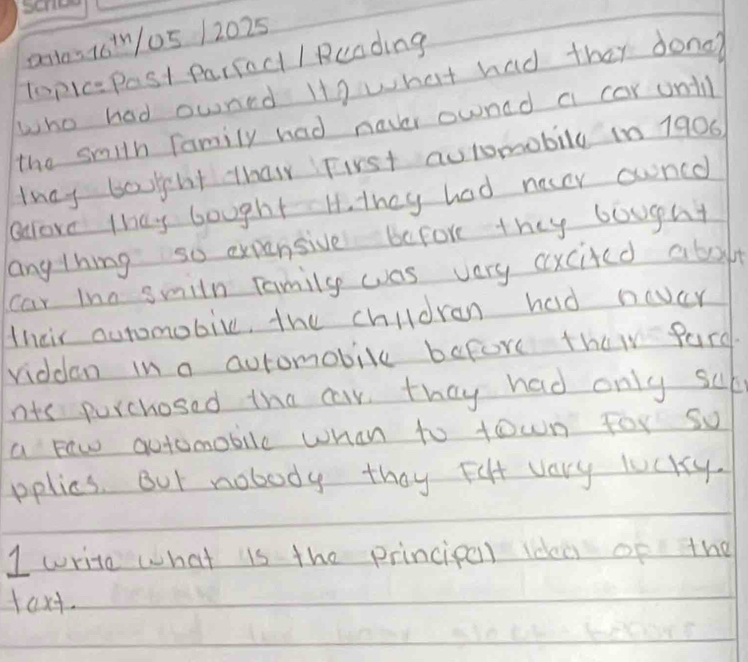 School
Date: 16th/05/2025
Topic: Past Parfact/Reading
who had owned it? what had they done?
the smith Family had naver owned a car until
they bought thair First automobile in 1906
Before they bought it. they had never owned
anything so expensive before they bought
car the smith Family was very excited about
their automobile. the children had never
ridden in a automobile before their pare
nts purchosed the car. they had only
a Few automobile when to town For su
pplies. But nobody they Felt very lucky.
1 write what is the principal idea of the
text.